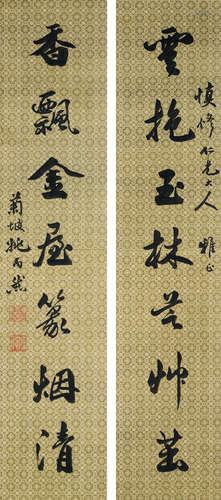 慎修仁兄大人 雅正
雲拖玉林芝艸茁
香飄金屋篆烟清
菊坡姚丙然